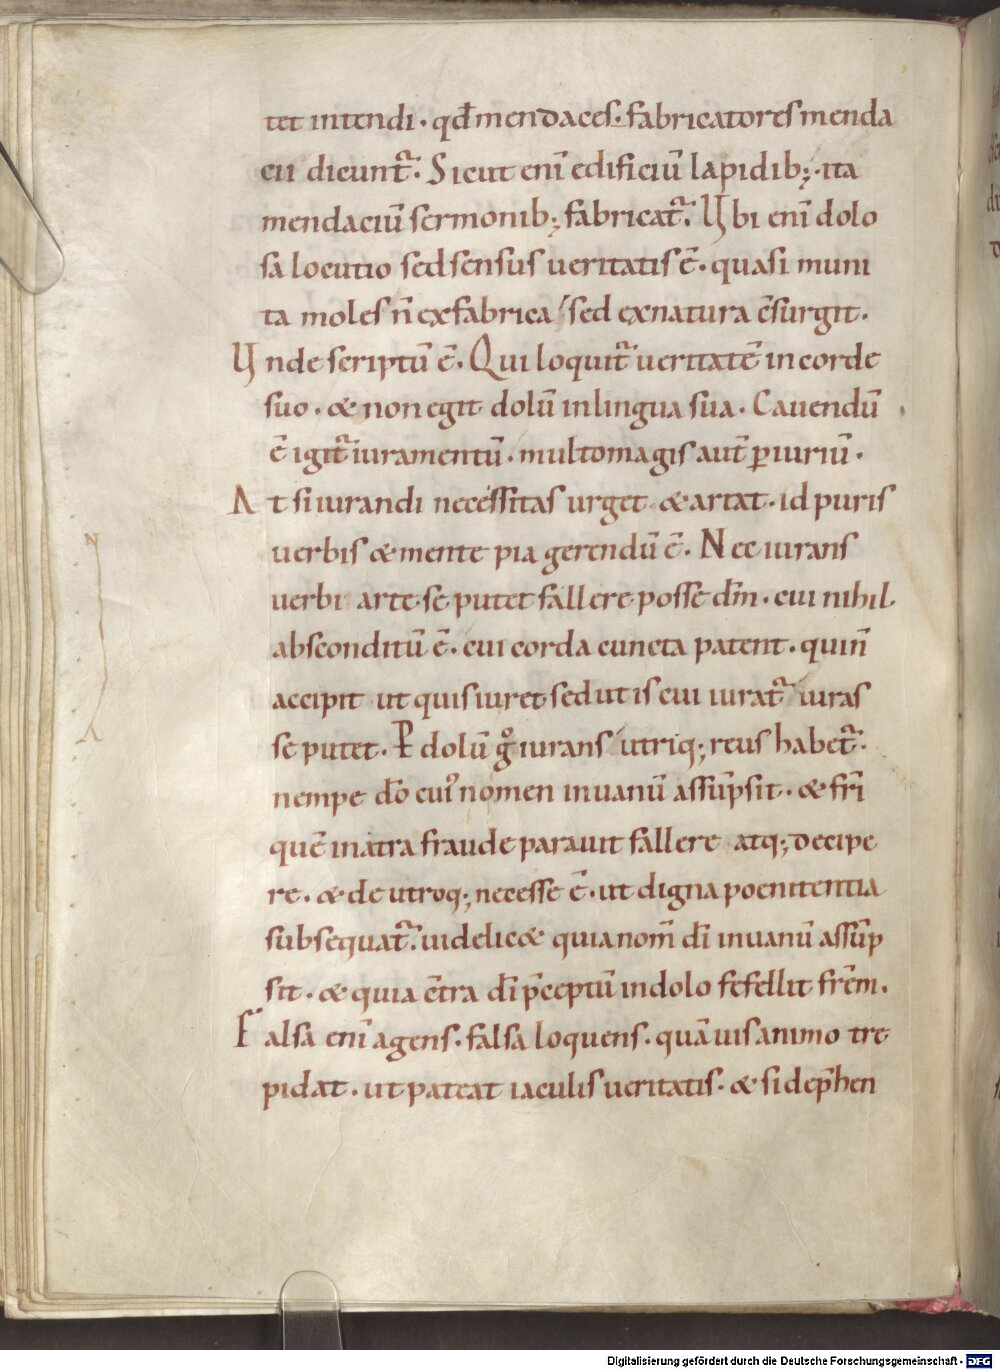 tet intendi · qđ mendaces · fabricatores menda
cii dicunt᷑ · Sicut enī edificiū lapidib; · ita
mendaciū sermonib; fabricat᷑ · Ubi enī dolo
sa locutio sed sensus veritatis ē · quasi muni
ta moles n̄ ex fabrica sed ex natura c̄surgit ·
Unde scriptū ē · Qui loquit᷑ veritatē in corde
suo · & non egit dolū in lingua sua · Cavendū
ē igit᷑ iuramentū · multo magis aut̄ ꝑiuriū ·
At si iurandi necessitas urget & artat · id puris
verbis & mente pia gerendū ē · Nec iurans
verbi arte se putet fallere posse dm̄ · cui nihil
absconditū ē · cui corda cuncta patent · qui n̄
accipit ut quis iuret sed ut is cui iurat᷑ iuras
se putet · P̱ dolū gͦ iurans utriq; reus habet᷑ ·
nempe dō cuiꝰ nomen in vanū assūpsit · & fr̄i
quē in atra fraude paravit fallere atq; decipe
re · & de utroq; necesse ē · ut digna poenitentia
subsequat᷑ · videlic& quia nom̄ dī in vanū assūp
sit · & quia c̄tra dī p̄ceptū in dolo fefellit fr̄em ·
Falsa enī agens · falsa loquens · quāvis animo tre
pidat · ut pateat iaculis veritatis · & si dep̄hen
N
Digitalisierung gefördert durch die Deutsche Forschungsgemeinschaft - DFG